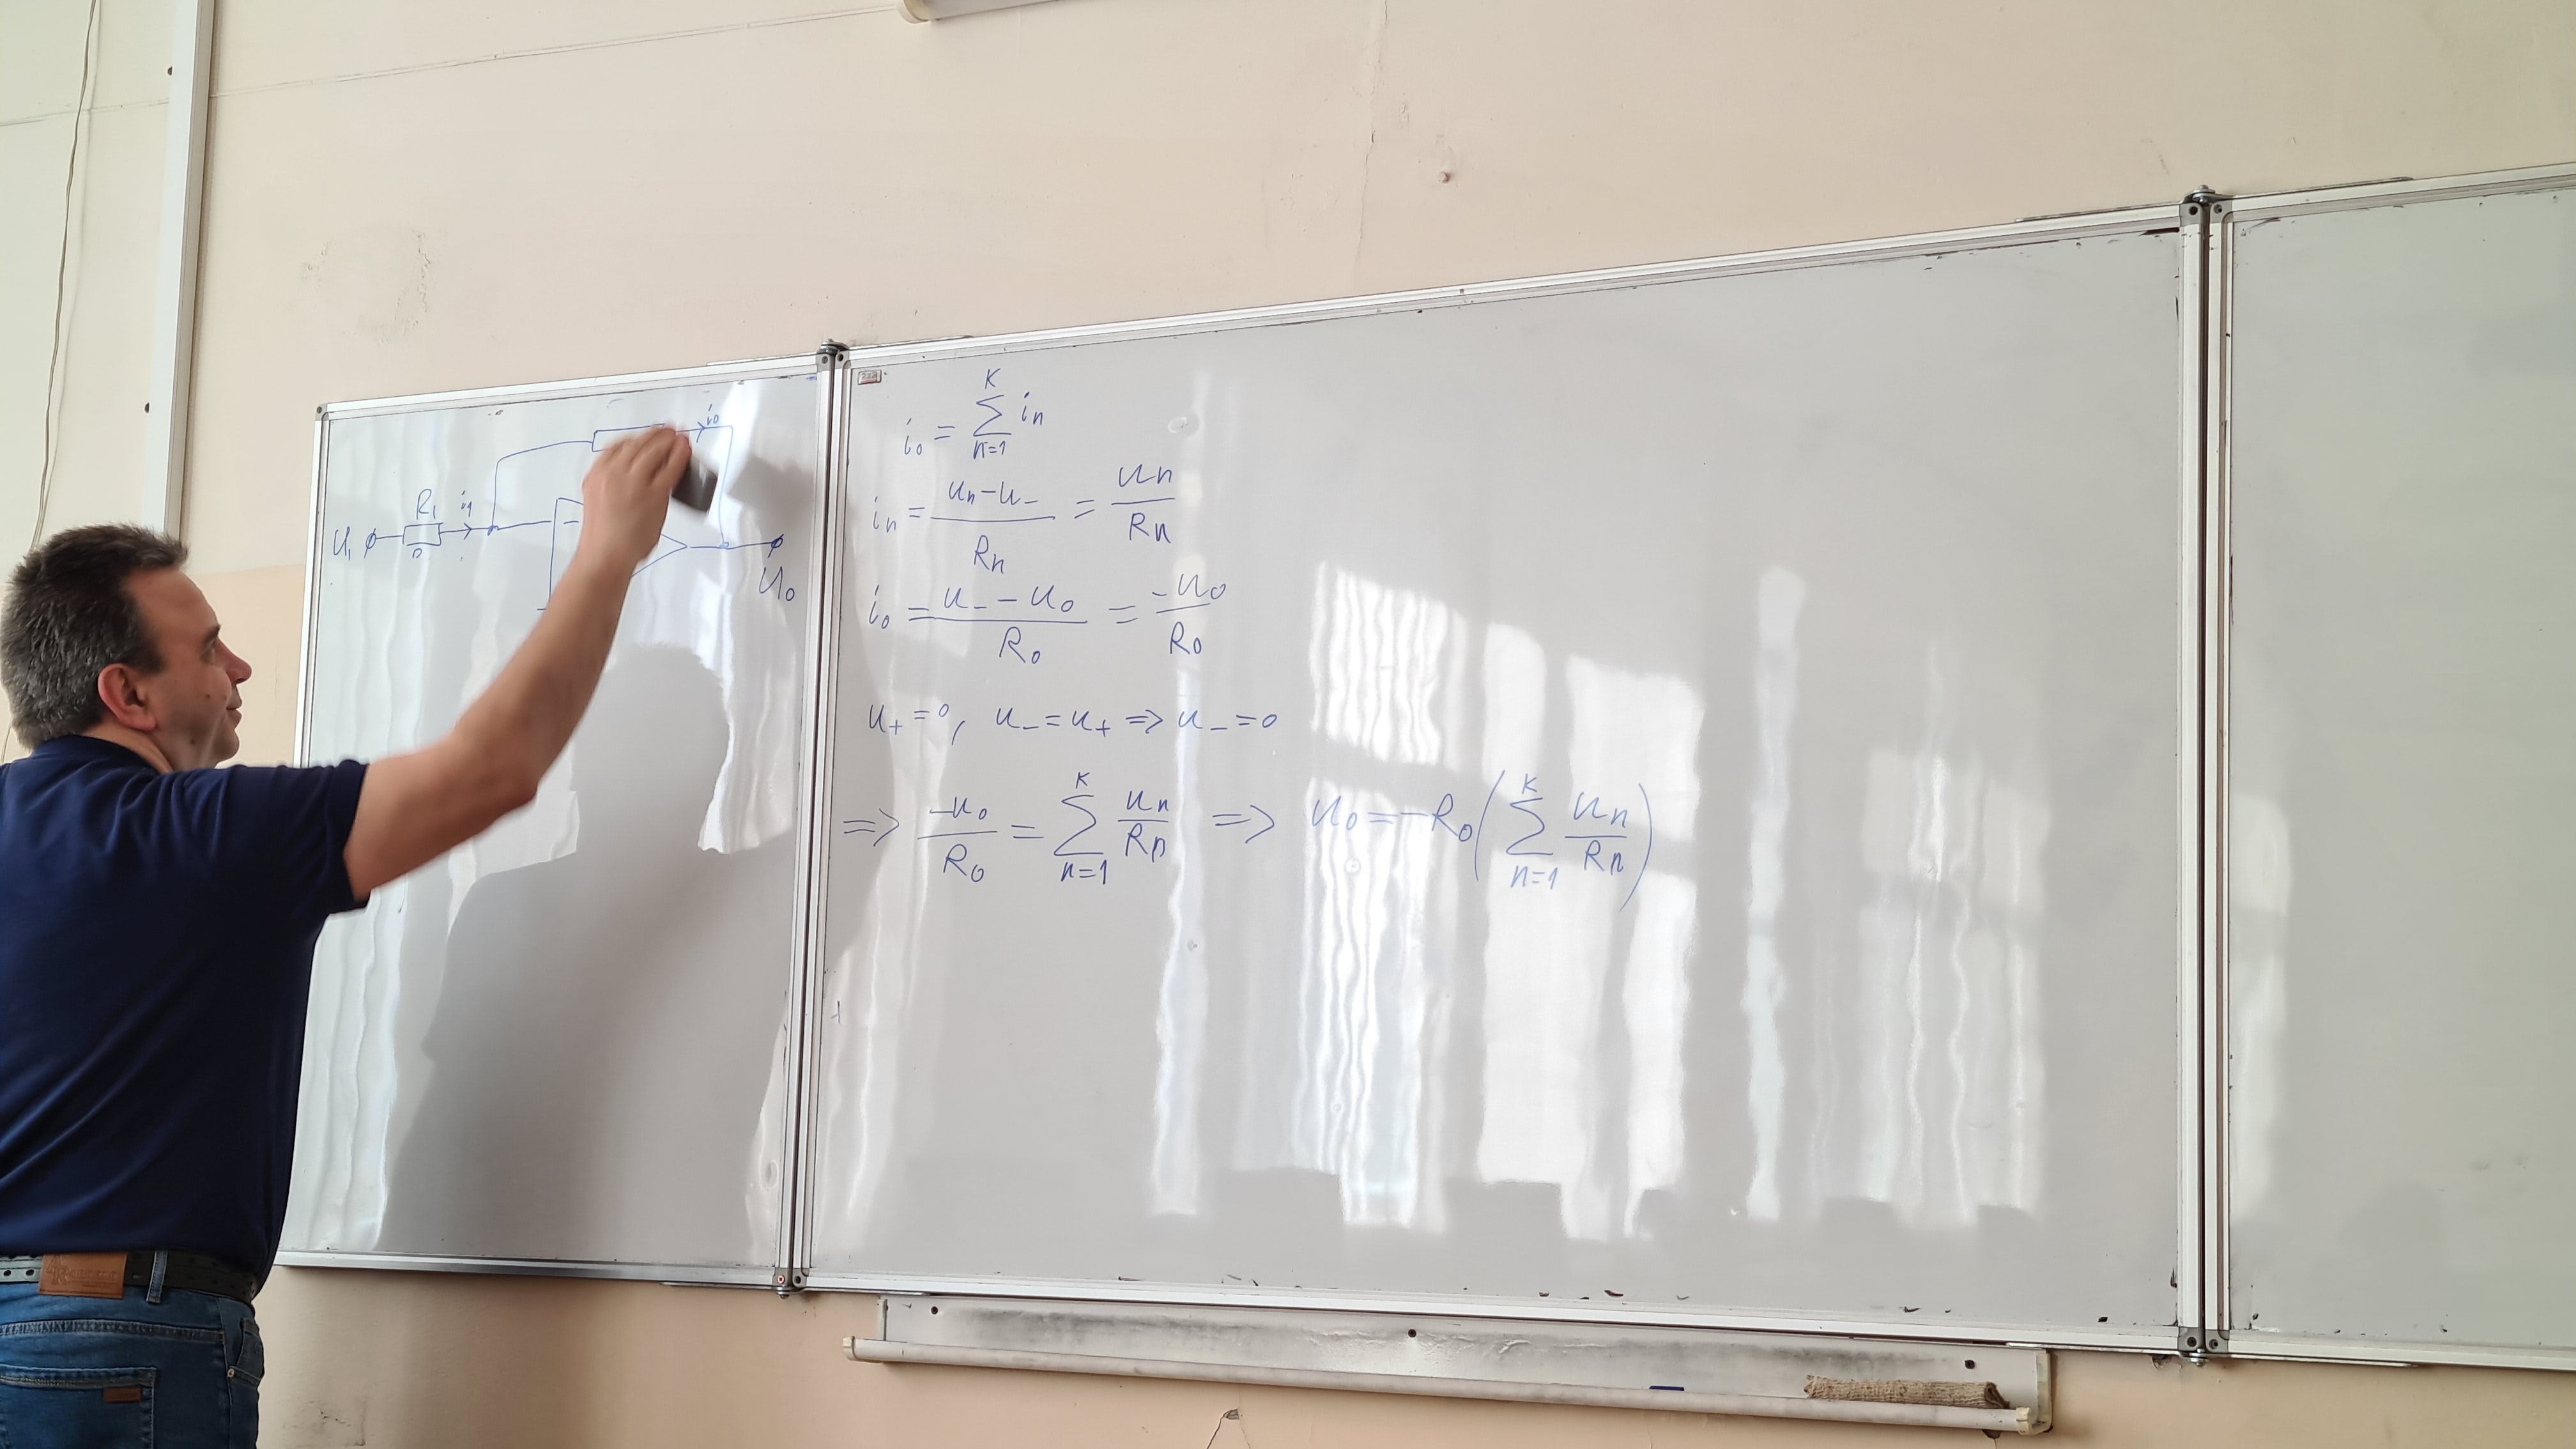 i₀
R₁
i₁
U₁
U₀
i₀ = ∑ₙ₌₁ᴷ iₙ
iₙ = (uₙ − u₋) / Rₙ = uₙ / Rₙ
i₀ = (u₋ − u₀) / R₀ = −u₀ / R₀
u₊ = 0, u₋ = u₊ => u₋ = 0
=> −u₀ / R₀ = ∑ₙ₌₁ᴷ uₙ / Rₙ => u₀ = −R₀ (∑ₙ₌₁ᴷ uₙ / Rₙ)